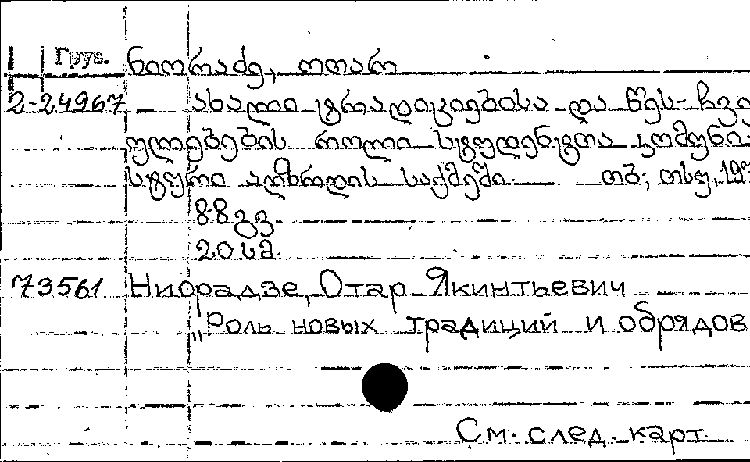 Груз. ნიორაძე, ოთარ
2-24967 ახალი ტრადიციებისა და წეს-ჩვე
ულებების როლი სტუდენტთა კომუნი
სტური აღზრდის საქმეში. თბ., თსუ, 197
88 გვ.
20 სმ.
73561 Ниорадзе, Отар Якинтьевич
„Роль новых традиций и обрядов
См. след. карт.